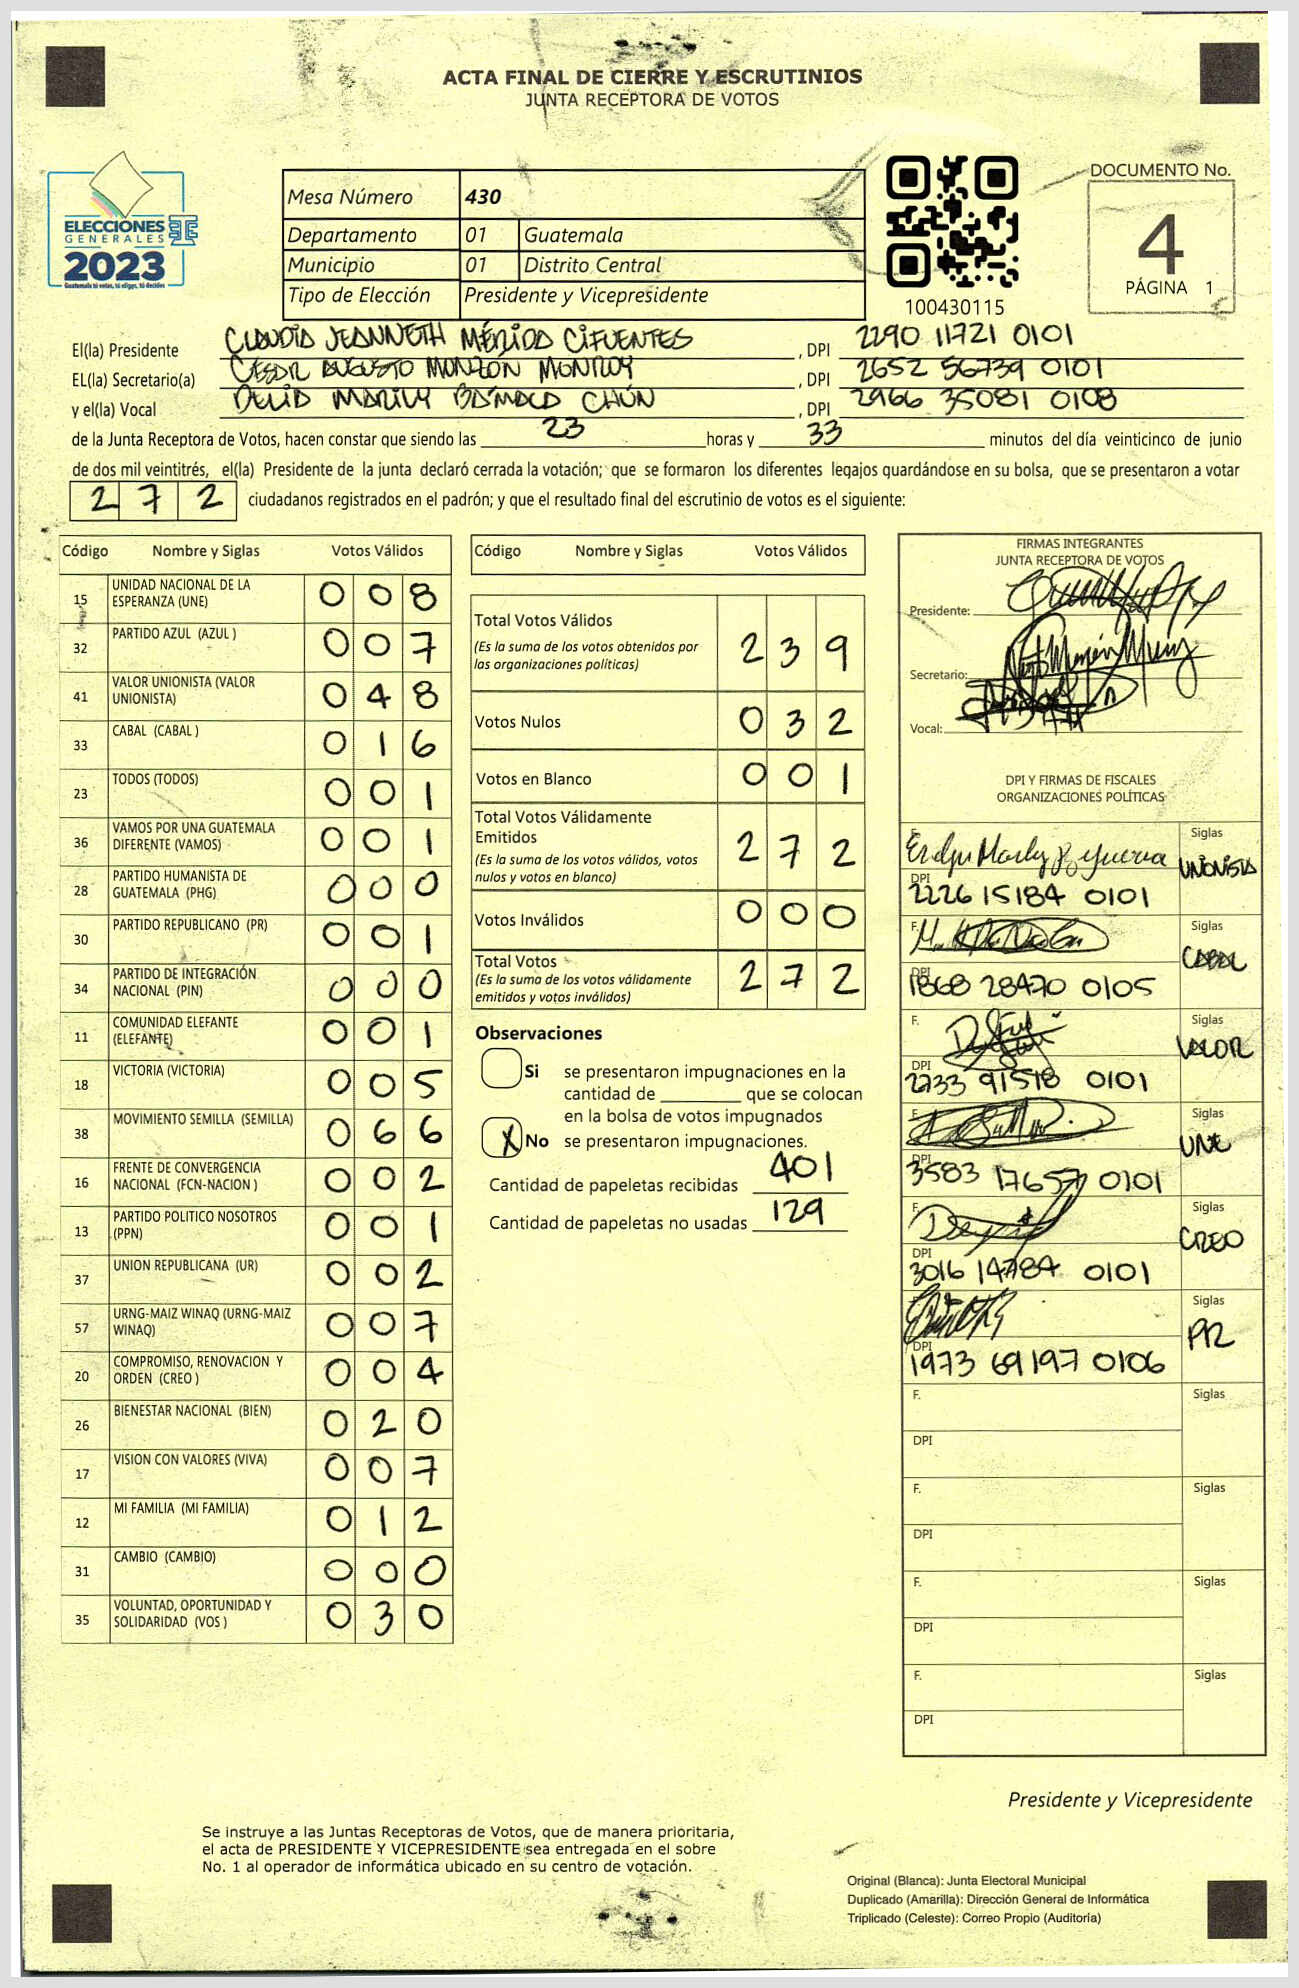 ACTA FINAL DE CIERRE Y ESCRUTINIOS
JUNTA RECEPTORA DE VOTOS
ELECCIONES
GENERALES
2023
Guatemala tú votas, tú eliges, tú decides
Mesa Número 430
Departamento 01 Guatemala
Municipio 01 Distrito Central
Tipo de Elección Presidente y Vicepresidente
100430115
DOCUMENTO No.
4
PÁGINA 1
El(la) Presidente CLAUDIA JEANNETH MÉRIDA CIFUENTES, DPI 2290 11721 0101
EL(la) Secretario(a) CESAR AUGUSTO MONZÓN MONROY, DPI 2652 56739 0101
y el(la) Vocal DELIA MARILY BÁMACA CHÚN, DPI 2966 35081 0108
de la Junta Receptora de Votos, hacen constar que siendo las 23 horas y 33 minutos del día veinticinco de junio
de dos mil veintitrés, el(la) Presidente de la junta declaró cerrada la votación; que se formaron los diferentes legajos guardándose en su bolsa, que se presentaron a votar
272 ciudadanos registrados en el padrón; y que el resultado final del escrutinio de votos es el siguiente:
Código Nombre y Siglas Votos Válidos
15 UNIDAD NACIONAL DE LA ESPERANZA (UNE) 008
32 PARTIDO AZUL (AZUL ) 007
41 VALOR UNIONISTA (VALOR UNIONISTA) 048
33 CABAL (CABAL ) 016
23 TODOS (TODOS) 001
36 VAMOS POR UNA GUATEMALA DIFERENTE (VAMOS) 001
28 PARTIDO HUMANISTA DE GUATEMALA (PHG) 000
30 PARTIDO REPUBLICANO (PR) 001
34 PARTIDO DE INTEGRACIÓN NACIONAL (PIN) 000
11 COMUNIDAD ELEFANTE (ELEFANTE) 001
18 VICTORIA (VICTORIA) 005
38 MOVIMIENTO SEMILLA (SEMILLA) 066
16 FRENTE DE CONVERGENCIA NACIONAL (FCN-NACION ) 002
13 PARTIDO POLITICO NOSOTROS (PPN) 001
37 UNION REPUBLICANA (UR) 002
57 URNG-MAIZ WINAQ (URNG-MAIZ WINAQ) 007
20 COMPROMISO, RENOVACION Y ORDEN (CREO ) 004
26 BIENESTAR NACIONAL (BIEN) 020
17 VISION CON VALORES (VIVA) 007
12 MI FAMILIA (MI FAMILIA) 012
31 CAMBIO (CAMBIO) 000
35 VOLUNTAD, OPORTUNIDAD Y SOLIDARIDAD (VOS ) 030
Código Nombre y Siglas Votos Válidos
Total Votos Válidos 239
(Es la suma de los votos obtenidos por
las organizaciones políticas)
Votos Nulos 032
Votos en Blanco 001
Total Votos Válidamente Emitidos 272
(Es la suma de los votos válidos, votos
nulos y votos en blanco)
Votos Inválidos 000
Total Votos 272
(Es la suma de los votos válidamente
emitidos y votos inválidos)
Observaciones
Si se presentaron impugnaciones en la
cantidad de ________ que se colocan
en la bolsa de votos impugnados
X No se presentaron impugnaciones.
Cantidad de papeletas recibidas 401
Cantidad de papeletas no usadas 129
FIRMAS INTEGRANTES
JUNTA RECEPTORA DE VOTOS
Presidente:
Secretario:
Vocal:
DPI Y FIRMAS DE FISCALES
ORGANIZACIONES POLÍTICAS
F. Siglas UNIONISTA
DPI 2226 15184 0101
F. Siglas CABAL
DPI 1868 28470 0105
F. Siglas VALOR
DPI 2733 91518 0101
F. Siglas UNE
DPI 3583 17657 0101
F. Siglas CREO
DPI 3016 14784 0101
F. Siglas PR
DPI 1973 69197 0106
F. Siglas
DPI
F. Siglas
DPI
F. Siglas
DPI
F. Siglas
DPI
Presidente y Vicepresidente
Se instruye a las Juntas Receptoras de Votos, que de manera prioritaria,
el acta de PRESIDENTE Y VICEPRESIDENTE sea entregada en el sobre
No. 1 al operador de informática ubicado en su centro de votación.
Original (Blanca): Junta Electoral Municipal
Duplicado (Amarilla): Dirección General de Informática
Triplicado (Celeste): Correo Propio (Auditoría)